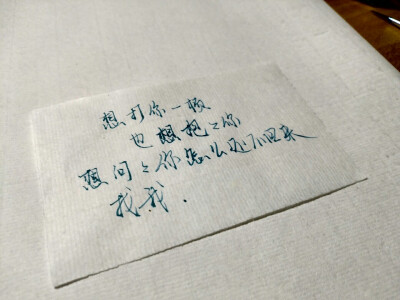 想打你一顿
也想抱々你
想问々你怎么还不回来
找我.